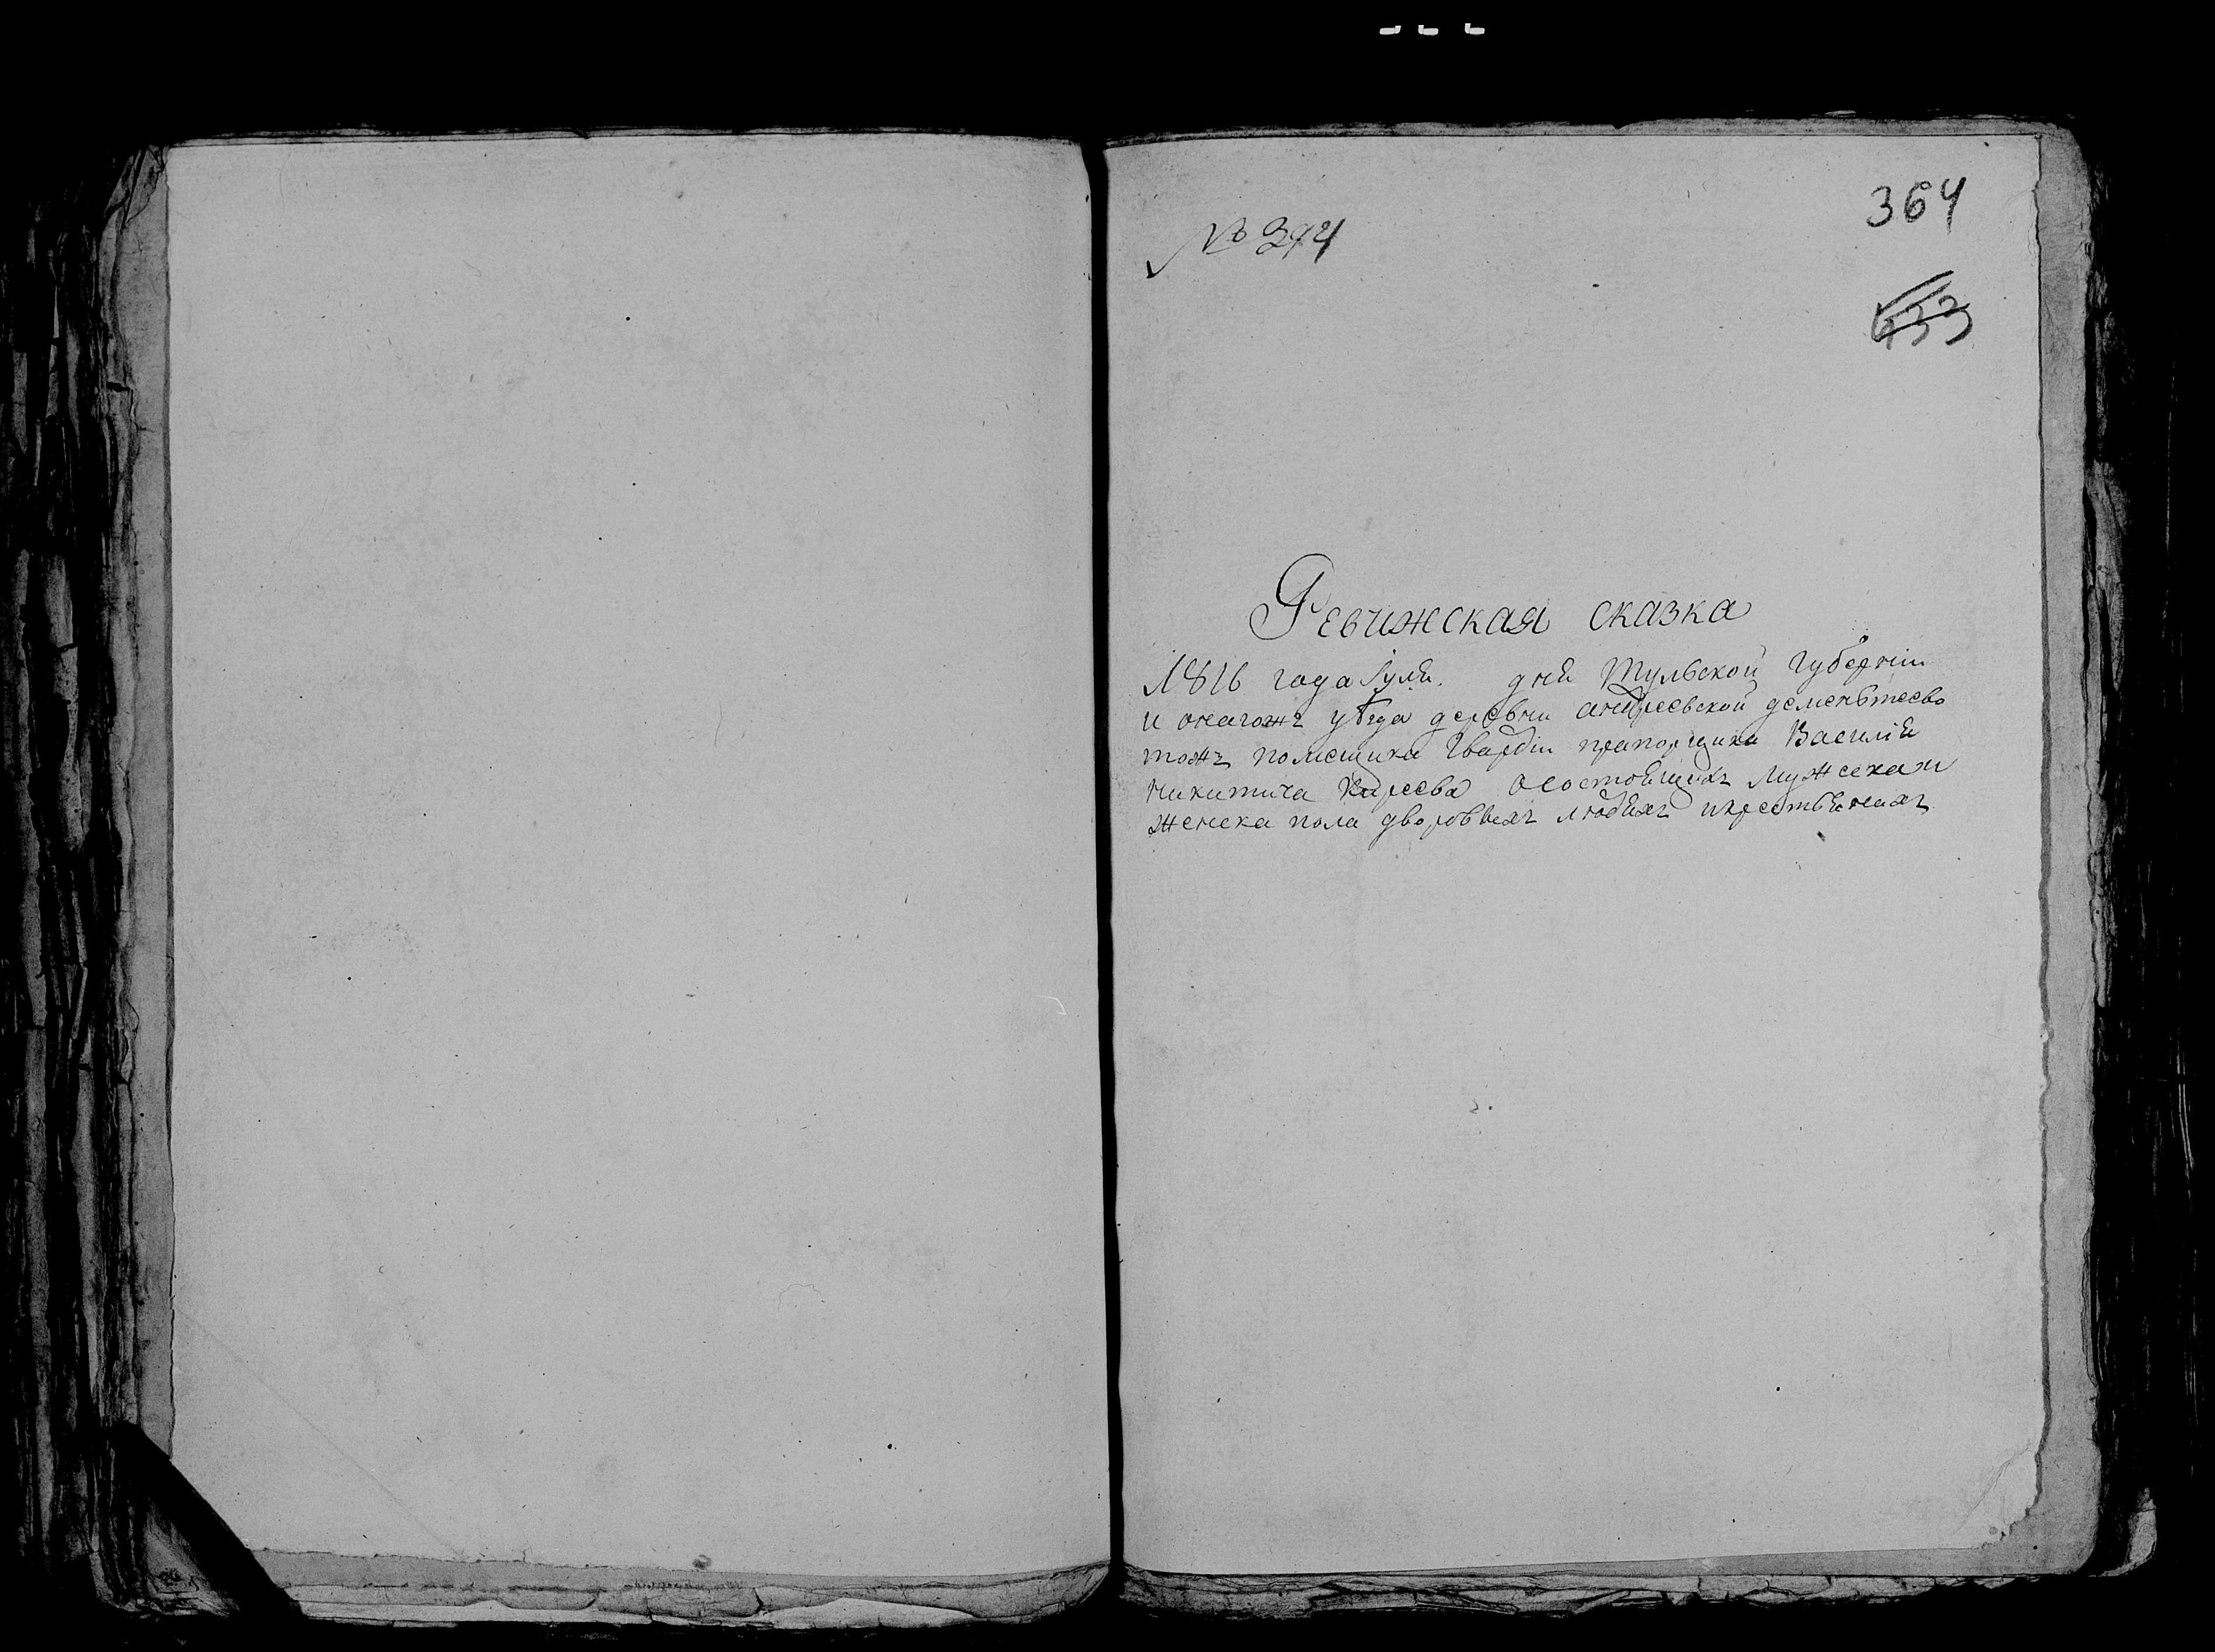 364
№ 394
Ревижская сказка
1816 года Iуля. дня Тульской губернiи
и онагожъ уѣзда деревни андреевской деменьтеево
тожъ помещика Гвардiи прапорщика Василiя
никитича Киреева осостоящихъ мужеска и
женска пола дворовыхъ людяхъ икрестьянахъ